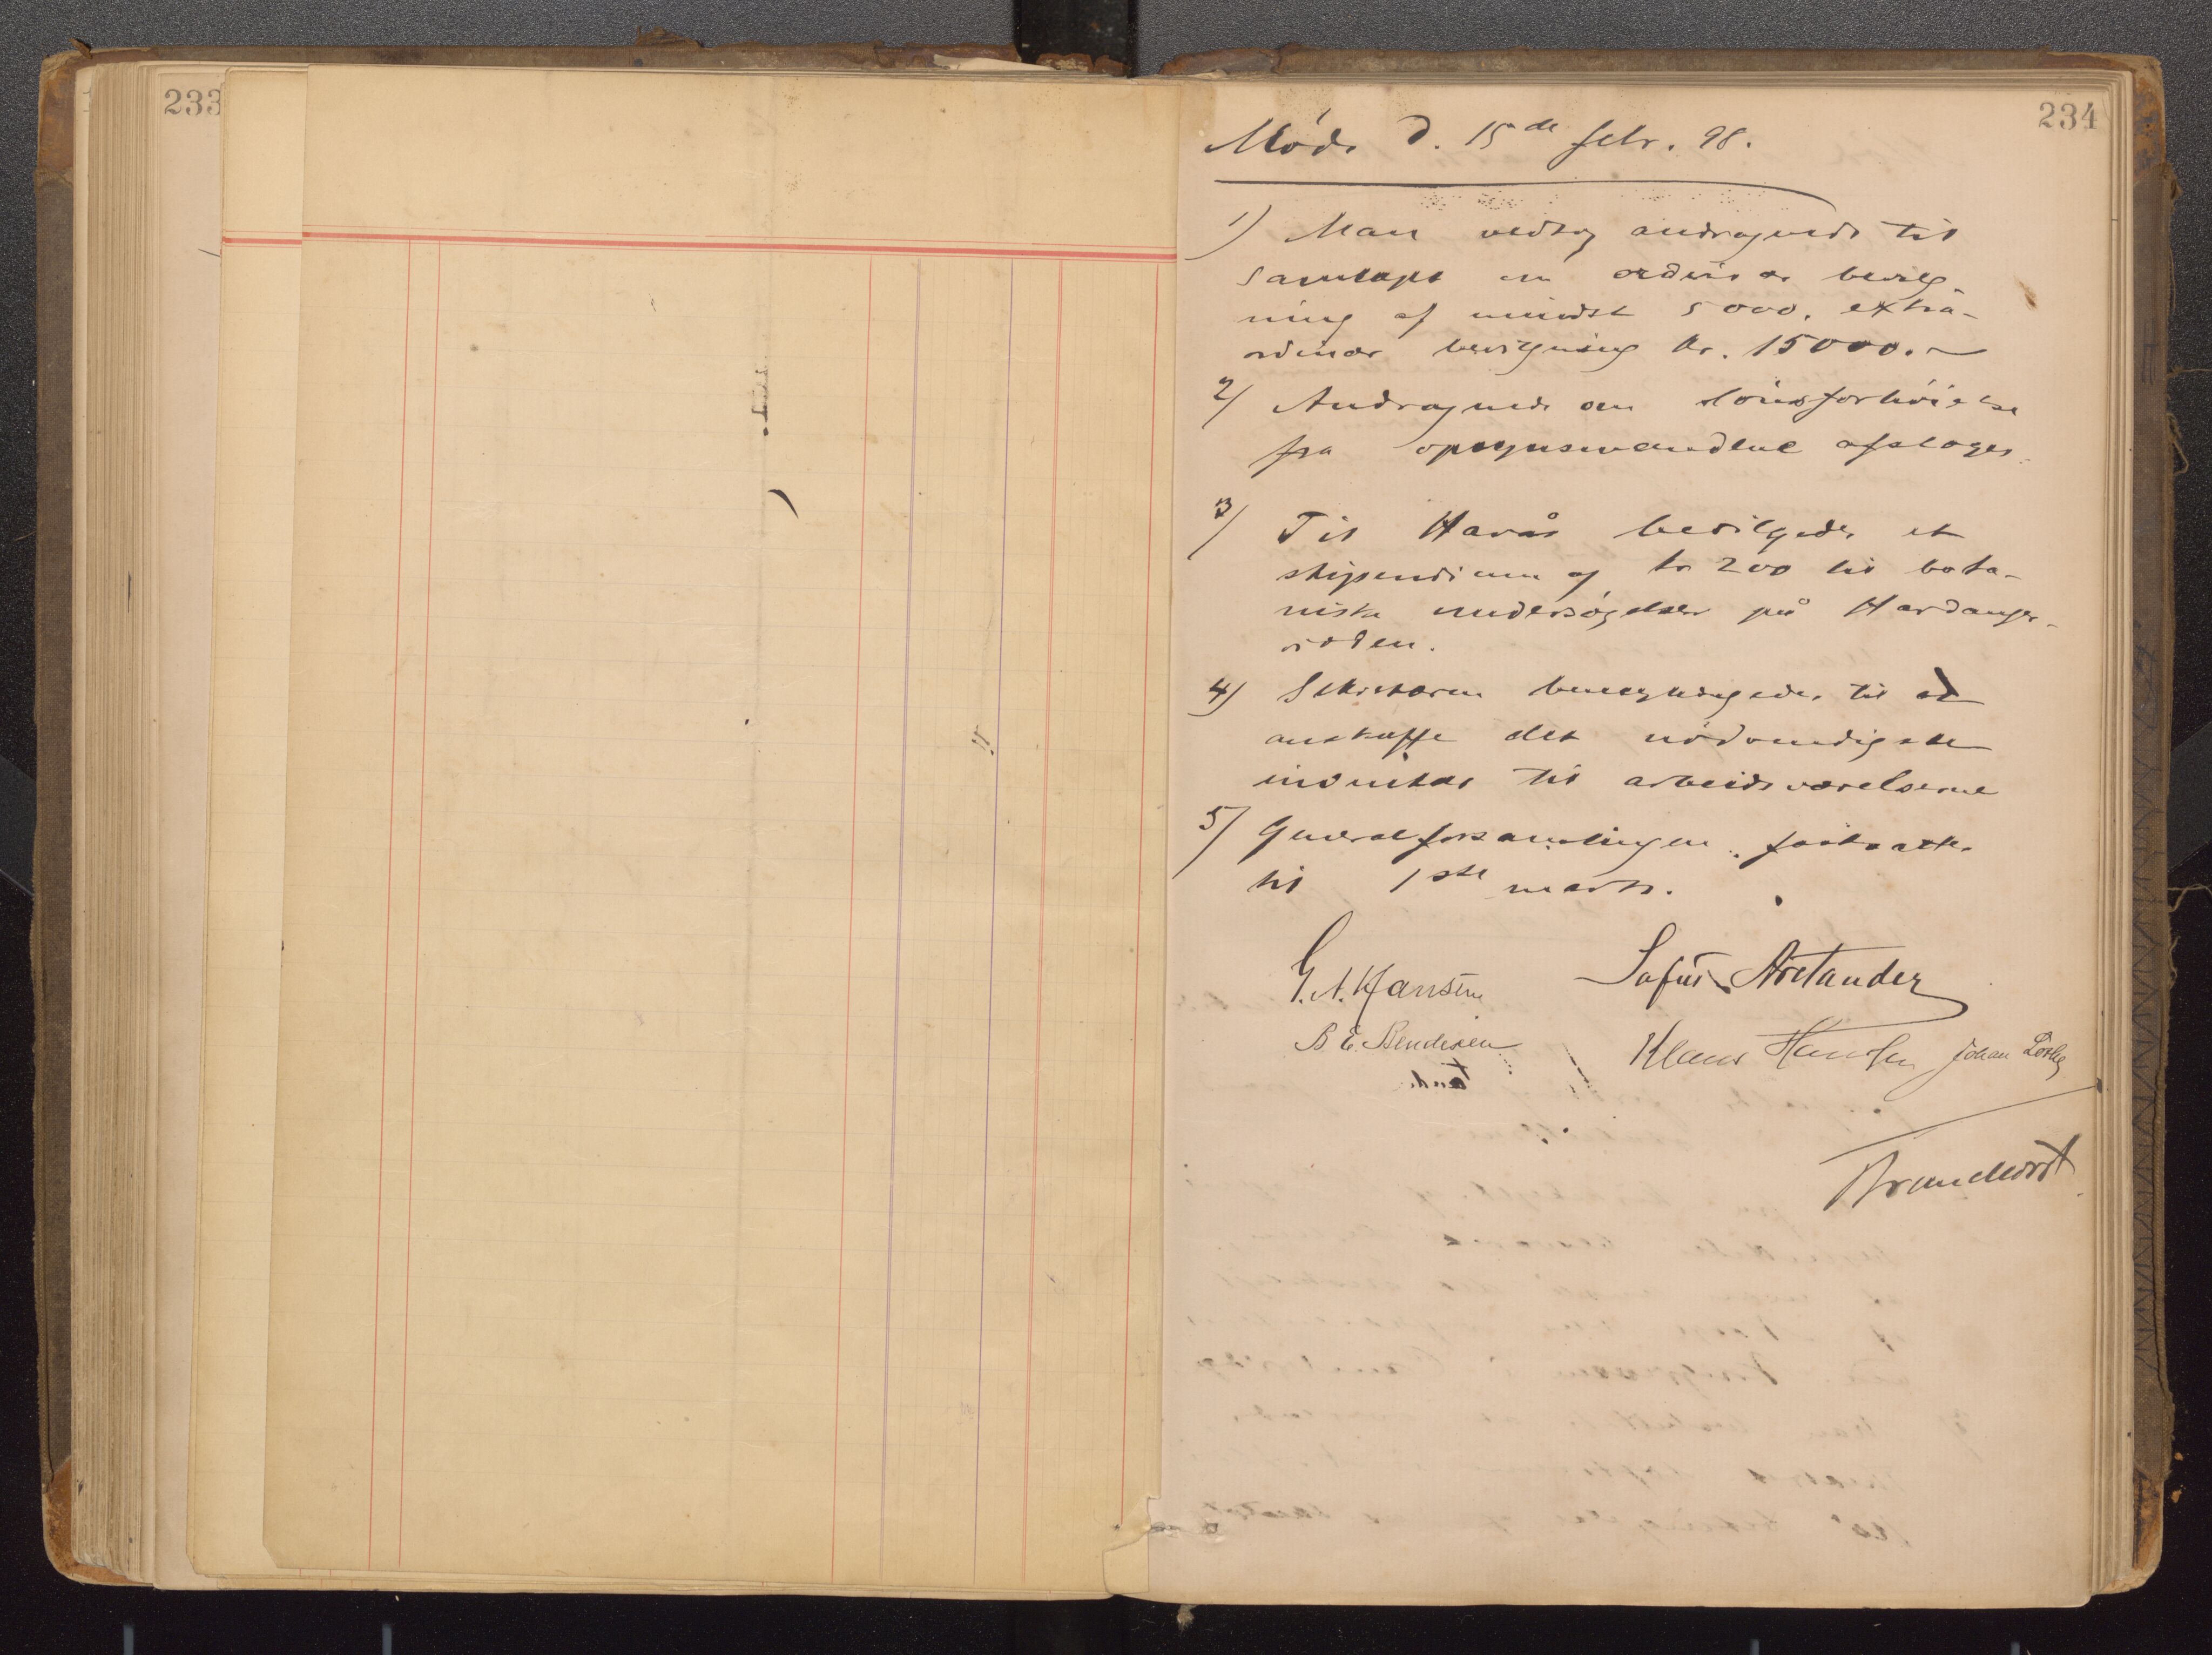 233
234
Møde d. 15de febr. 98.
1) Man vedtog andragende til
samlaget om ordinær bevilg-
ning af mindst 5000. extra-
ordinær bevilgning kr. 15000.-
2) Andragende om lønsforhøielse
fra opsynsmændene afsloges.
3) Til Havås bevilgedes et
stipendium af kr 200 til bota-
niske undersøgelser på Hardanger-
vidden.
4) Sekretæren bemyndigedes til at
anskaffe det nødvendigste
inventar til arbeidsværelserne
5) Generalforsamlingen fastsattes
til 1ste marts.
G. A. Hansen Sofus Arctander
B. E. Bendixen Klaus Hanssen Johan
Brunchorst